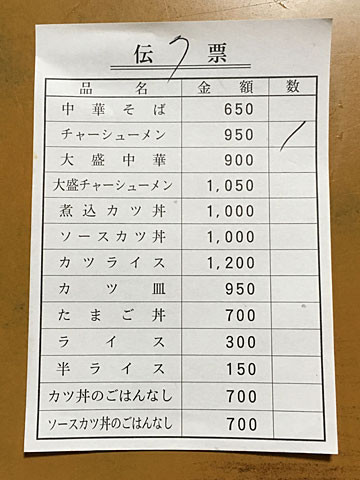 伝票
品名 金額 数
中華そば 650
チャーシューメン 950 /
大盛中華 900
大盛チャーシューメン 1,050
煮込カツ丼 1,000
ソースカツ丼 1,000
カツライス 1,200
カツ皿 950
たまご丼 700
ライス 300
半ライス 150
カツ丼のごはんなし 700
ソースカツ丼のごはんなし 700